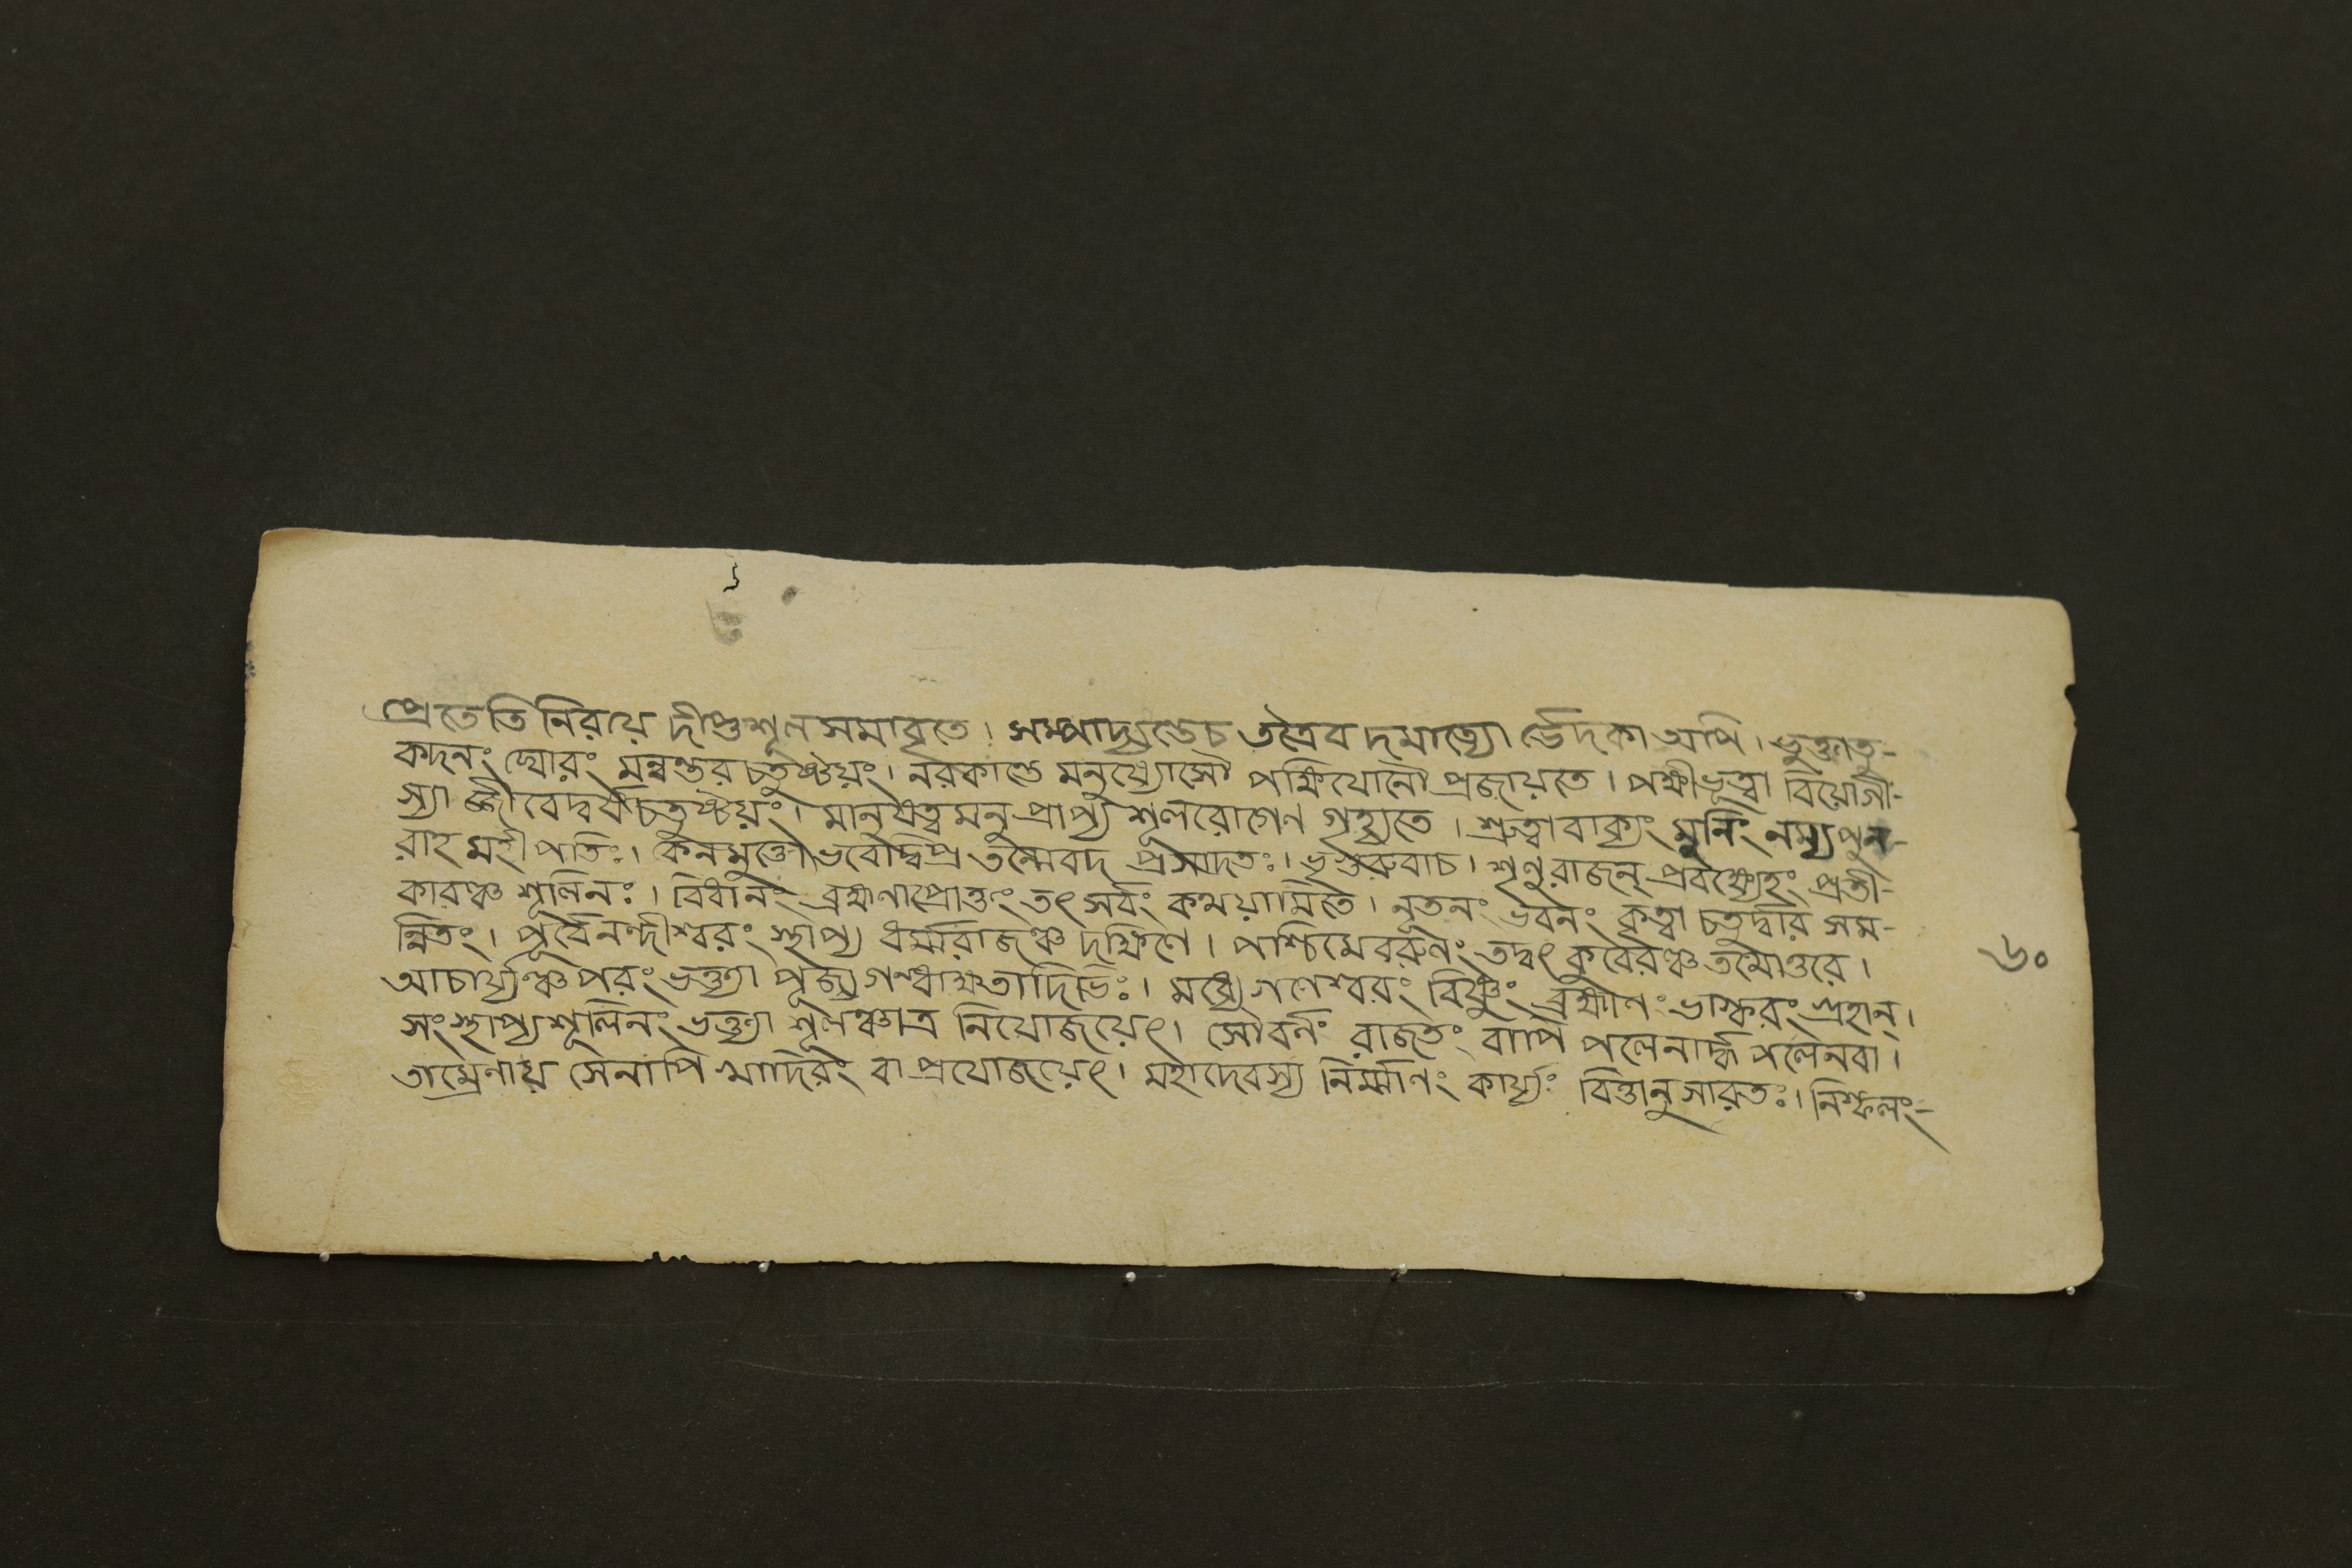 প্রেতেতি নিরয়ে দীপ্তশূলসমাবৃতে। সম্পাদ্যণ্ডেচ তত্রৈব দমাত্যো র্ভেদকা অপি। ভুক্তাতু-
কদনং ঘোরং মন্বন্তর চতুষ্টয়ং। নরকাণ্ডে মনুষ্যোসৌ পক্ষিযোনৌ প্রজায়তে। পক্ষীভূত্বা বিয়োগী-
স্যা জ্জীবেদ্বর্ষচতুষ্টয়ং। মানুষত্বমনুপ্রাপ্য শূলরোগেণ গৃহ্যতে। শ্রুত্বাবাক্যং মুনিং নম্যপুন-
রাহ মহীপতিঃ। কেনমুক্তো ভবেদ্বিপ্র তন্মেবদ প্রসাদতঃ। ভৃগুরুবাচ। শৃণুরাজন্ প্রবক্ষ্যেহং প্রতী-
কারঞ্চ শূলিনঃ। বিধানং ব্রহ্মণাপ্রোক্তং তৎ সর্বং কথয়ামিতে। নূতনং ভবনং কৃত্বা চতুর্দ্বার সম-
ন্বিতং। পূর্বেনন্দীশ্বরং স্থাপ্য ধর্ম্মরাজঞ্চ দক্ষিণে। পশ্চিমেবরুণং তদ্বৎ কুবেরঞ্চ তথোত্তরে।
আচার্য্যঞ্চ পরং ভক্ত্যা পূজ্য গন্ধাক্ষতাদিভিঃ। মধ্যে গণেশ্বরং বিষ্ণুং ব্রহ্মাণং ভাস্করং গ্রহান্।
সংস্থাপ্য শূলিনং ভক্ত্যা শূলঞ্চাত্র নিয়োজয়েৎ। সৌবর্ণং রাজতং বাপি পলেনার্দ্ধ পলেনবা।
তাম্রেণায় সেনাপি খাদিরং বা প্রযোজয়েৎ। মহাদেবস্য নির্ম্মাণং কার্য্যং বিত্তানুসারতঃ। নিষ্ফলং-
৬০